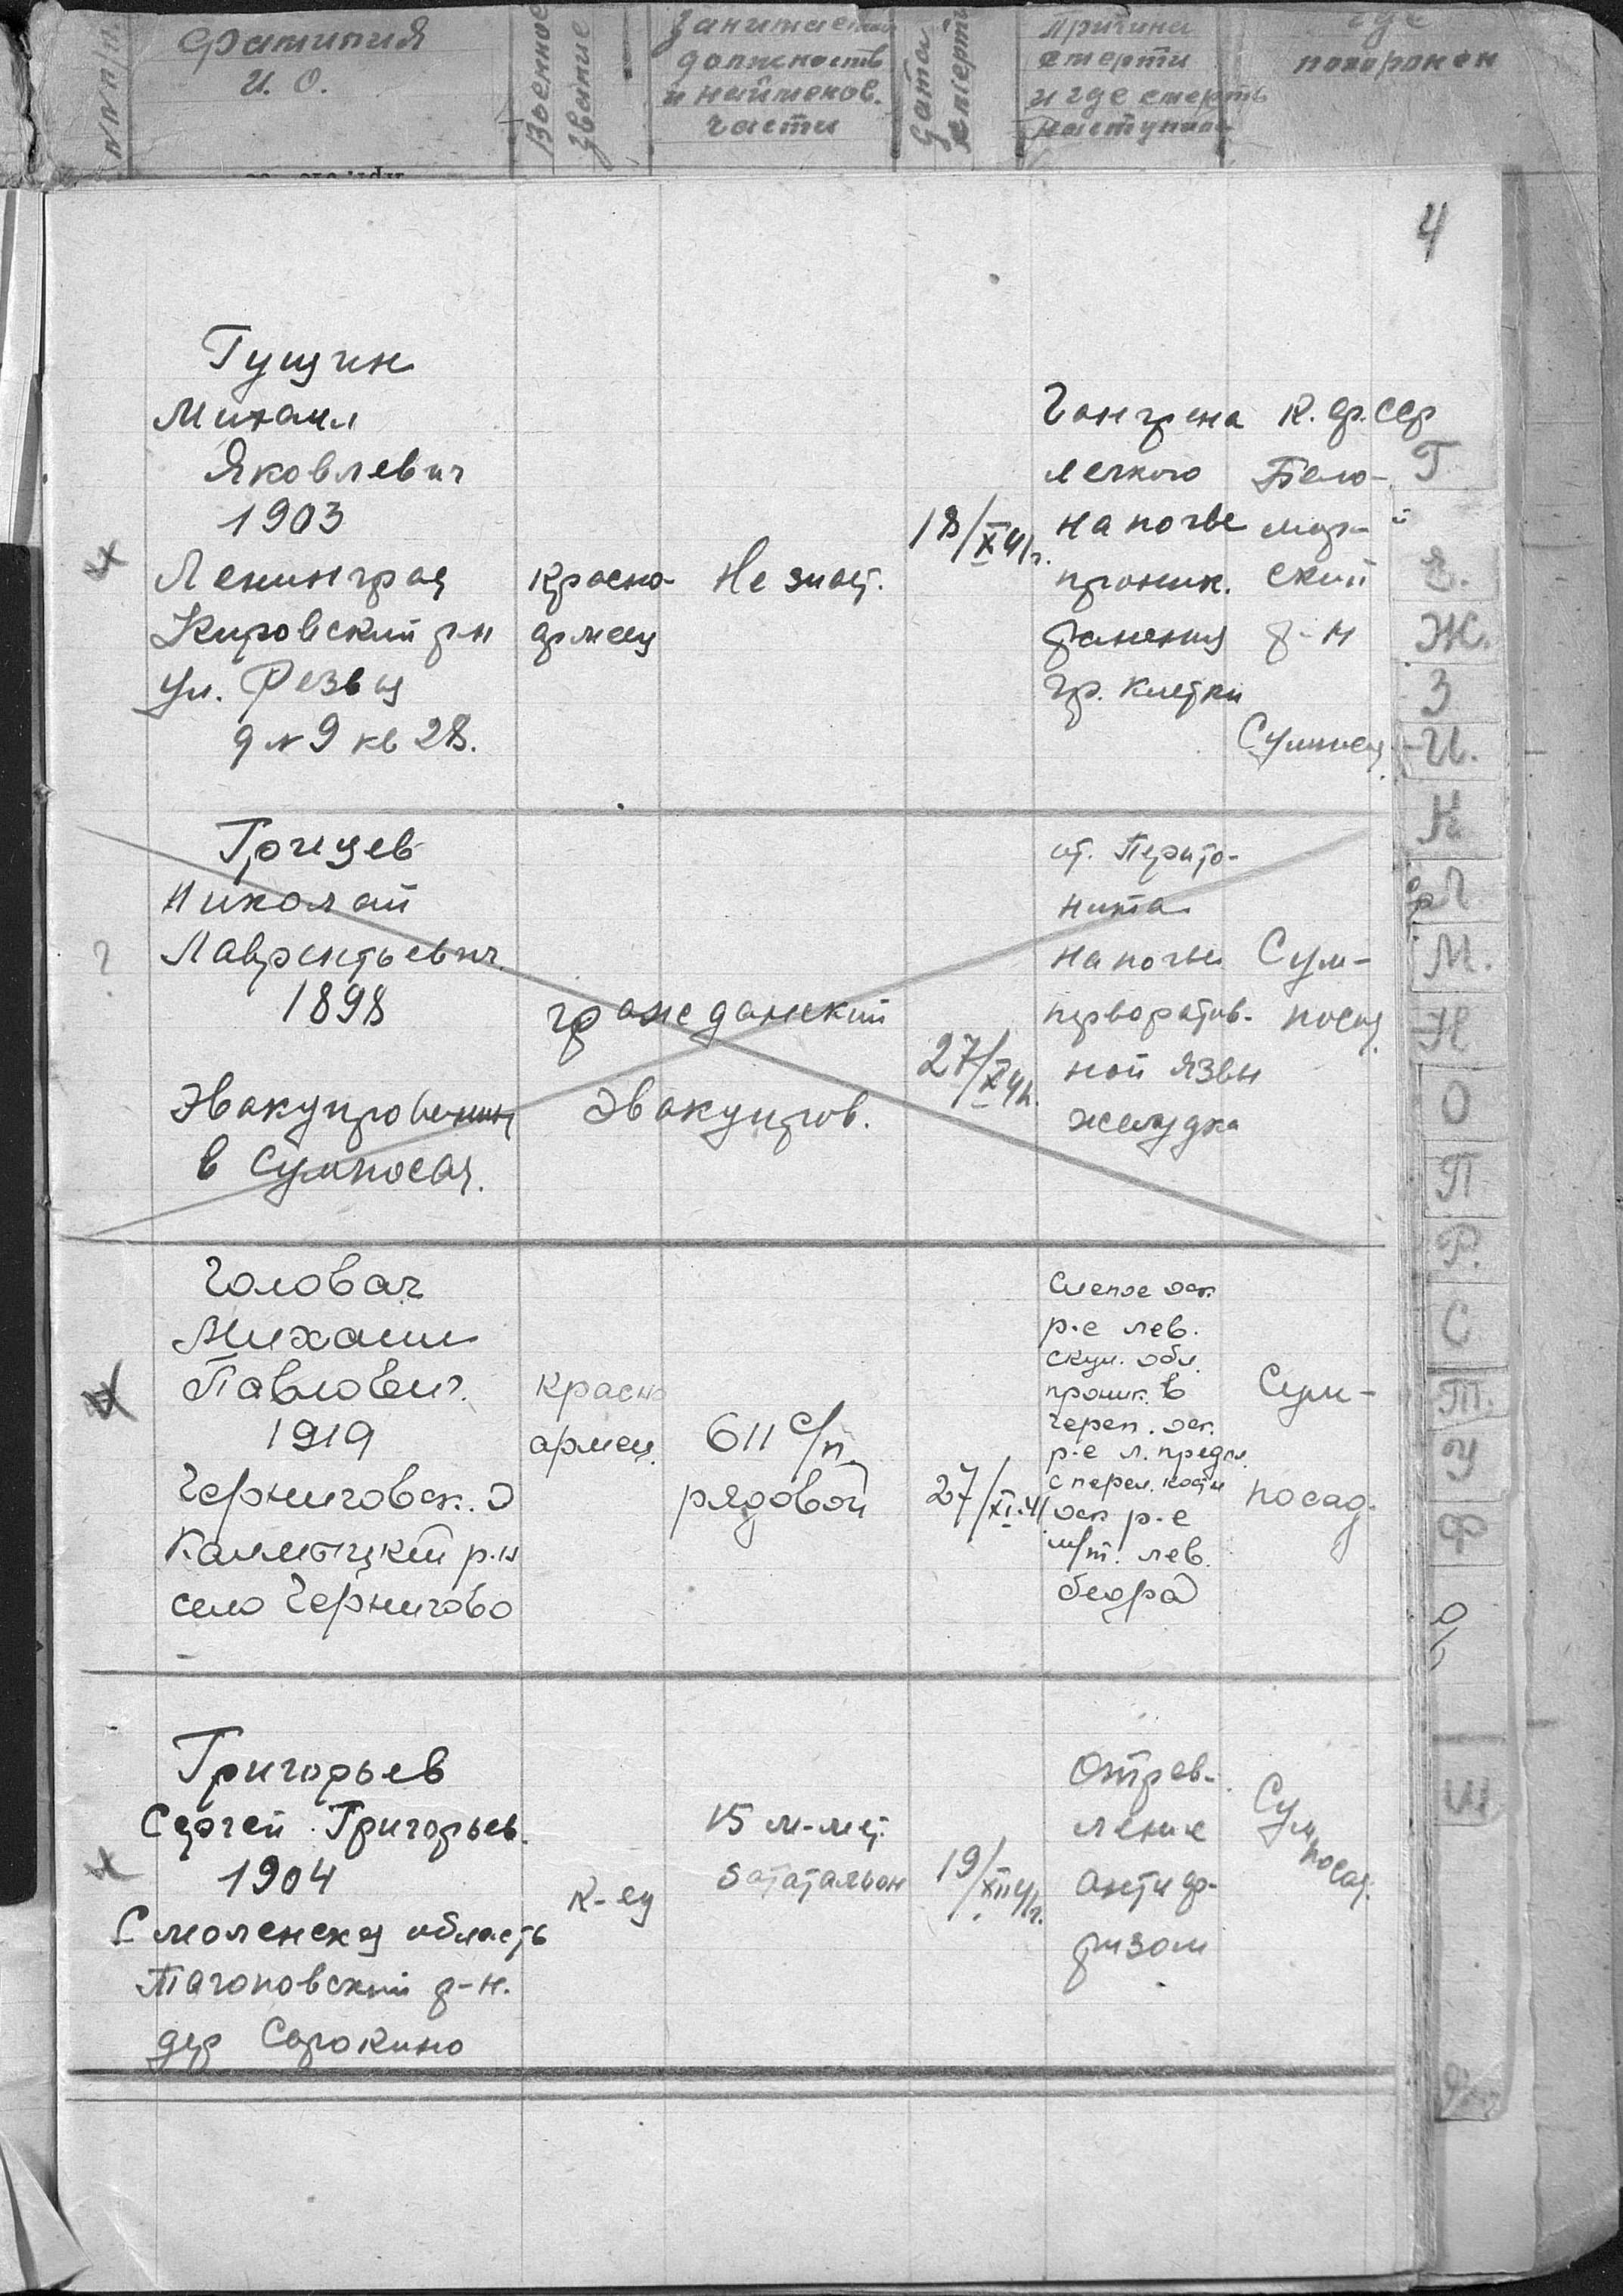 №№ п/п.
Фамилия
И. О.
Военное
звание
Занимаем
должность
и наименов.
части
Дата
смерти
Причина
смерти
и где смерть
наступила
где
похоронен
4
Гущин
Михаил
Яковлевич
1903
Ленинград
Кировский р-н
ул. Резвая
д №9 кв 28.
красно-
армеец
Не знает.
18/X 41г.
Гангрена
легкого
на почве
проник.
ранения
гр. клетки
К. Ф. ССР
Бело-
мор-
ский
р-н
Сумпосад.
Грицев
Николай
Лаврентьевич
1898
Эвакуированный
в Сумпосад.
гражданский
Эвакуиров.
27/X 41г.
от. Перито-
нита
на почве
перворатив-
ной язвы
желудка
Сум-
посад.
Головач
Михаил
Павлович
1919
Черниговск. О
р-н
село Чернигово
красно
армеец.
611 с/п
рядовой
27/XI-41
Слепое оск.
р-е лев.
скул. обл.
проник. в
череп. оск.
р-е л. предпл.
с перел. кости
оск р-е
м/т. лев.
бедра
Сум-
посад.
Григорьев
Сергей Григорьев.
1904
Смоленская область
р-н.
дер Сорокино
К-ец
15 м-мет.
батальон
19/XII 41г.
Отрав-
ление
антиф-
ризом
Сум
посад.
Г
Е.
Ж.
З
И.
К
Л
М.
Н
О
П
Р.
С
Т.
У
Ф
Ш